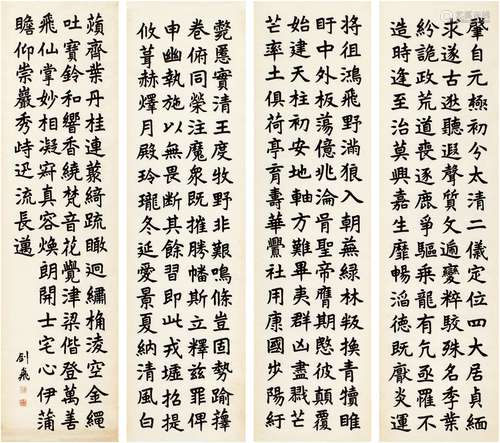 肇自元極初兮太清二儀上居貞緬
求遂古逖聽遐聲質文遞變粹駮殊名季葉
紛詭政荒道喪逐鹿爭驅乘龍有亢丞罹不
造時逢至治莫興嘉生靡暢滔德既厭炎運
將徂鴻飛野滿狼入朝蕪綠林叛換青犢睢
盱中外板蕩億兆淪胥聖帝膺期慜彼顛覆
始建天柱初安地軸方難畢夷群凶盡戮芒
芒率土俱荷亭育壽華社用康國步陽紆
斃慝實清王度牧野非艱鳴條豈固勢踰籜
卷俯同縈注魔眾既摧勝幡斯立釋茲罪俾
申幽執施以無畏斷其餘習即此戎墟招提
攸葺赫燡月殿玲瓏冬延愛景夏納清風白
蘋齊葉丹桂連叢綺疏瞰迥繡桷淩空金繩
吐寶鈴和響香繞梵音花覺津梁偕登萬善
飛仙掌妙相凝寂真容煥朗開士宅心伊蒲
瞻仰崇巖秀峙迅流長邁
劍飛